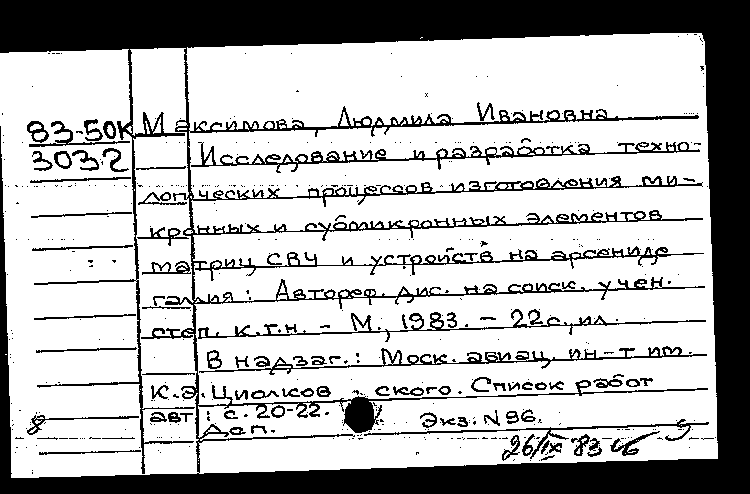 83-50К Максимова, Людмила Ивановна
3032 Исследование и разработка техно-
логических процессов изготовления ми-
кронных и субмикронных элементов
матриц СВЧ и устройств на арсениде
галлия: Автореф. дис. на соиск. учен.
степ. к.т.н. - М., 1983. - 22с., ил.
В надзаг.: Моск. авиац. ин-т им.
К.Э. Циолковского. Список работ
авт.: с. 20-22.
8 Доп. Экз. N 96.
26/IX 83